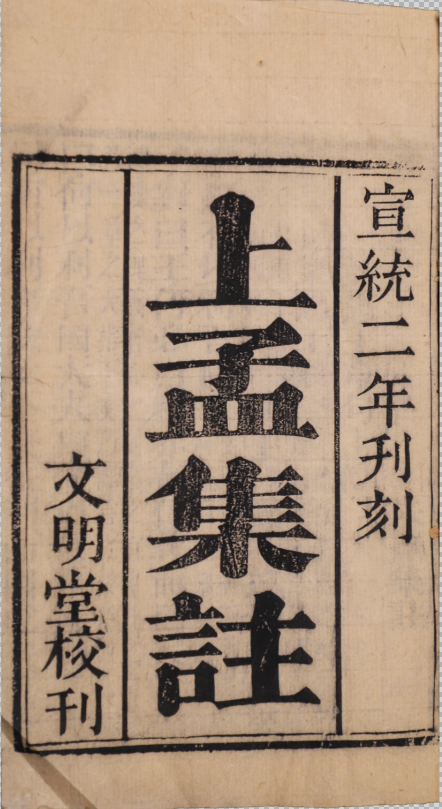 宣統二年刊刻
上孟集註
文明堂校刊